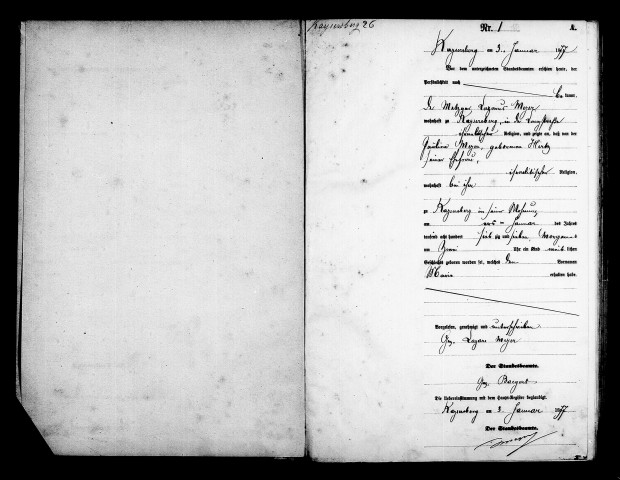 Kaysersberg 26
Nr. 1
A.
Kaysersberg am 3. Januar 1877
Vor dem unterzeichneten Standesbeamten erschien heute, der
Persönlichkeit nach
be kannt,
der Metzger Lazarus Meyer
wohnhaft zu Kaysersberg, in der Langstraße
israelitischer Religion, und zeigte an, daß von der
Paulina Meyer, geborenen Hertz
seiner Ehefrau,
israelitischer Religion,
wohnhaft bei ihm
zu Kaysersberg in seiner Wohnung
am ersten Januar des Jahres
tausend acht hundert sieb zig und sieben, Morgens
um Uhr ein Kind weib lichen
Geschlechts geboren worden sei, welches den Vornamen
Maria erhalten habe.
Vorgelesen, genehmigt und unterschrieben
Gez. Lazare Meyer
Der Standesbeamte.
Gez.
Die Uebereinstimmung mit dem Haupt-Register beglaubigt.
Kaysersberg am 3. Januar 1877
Der Standesbeamte.